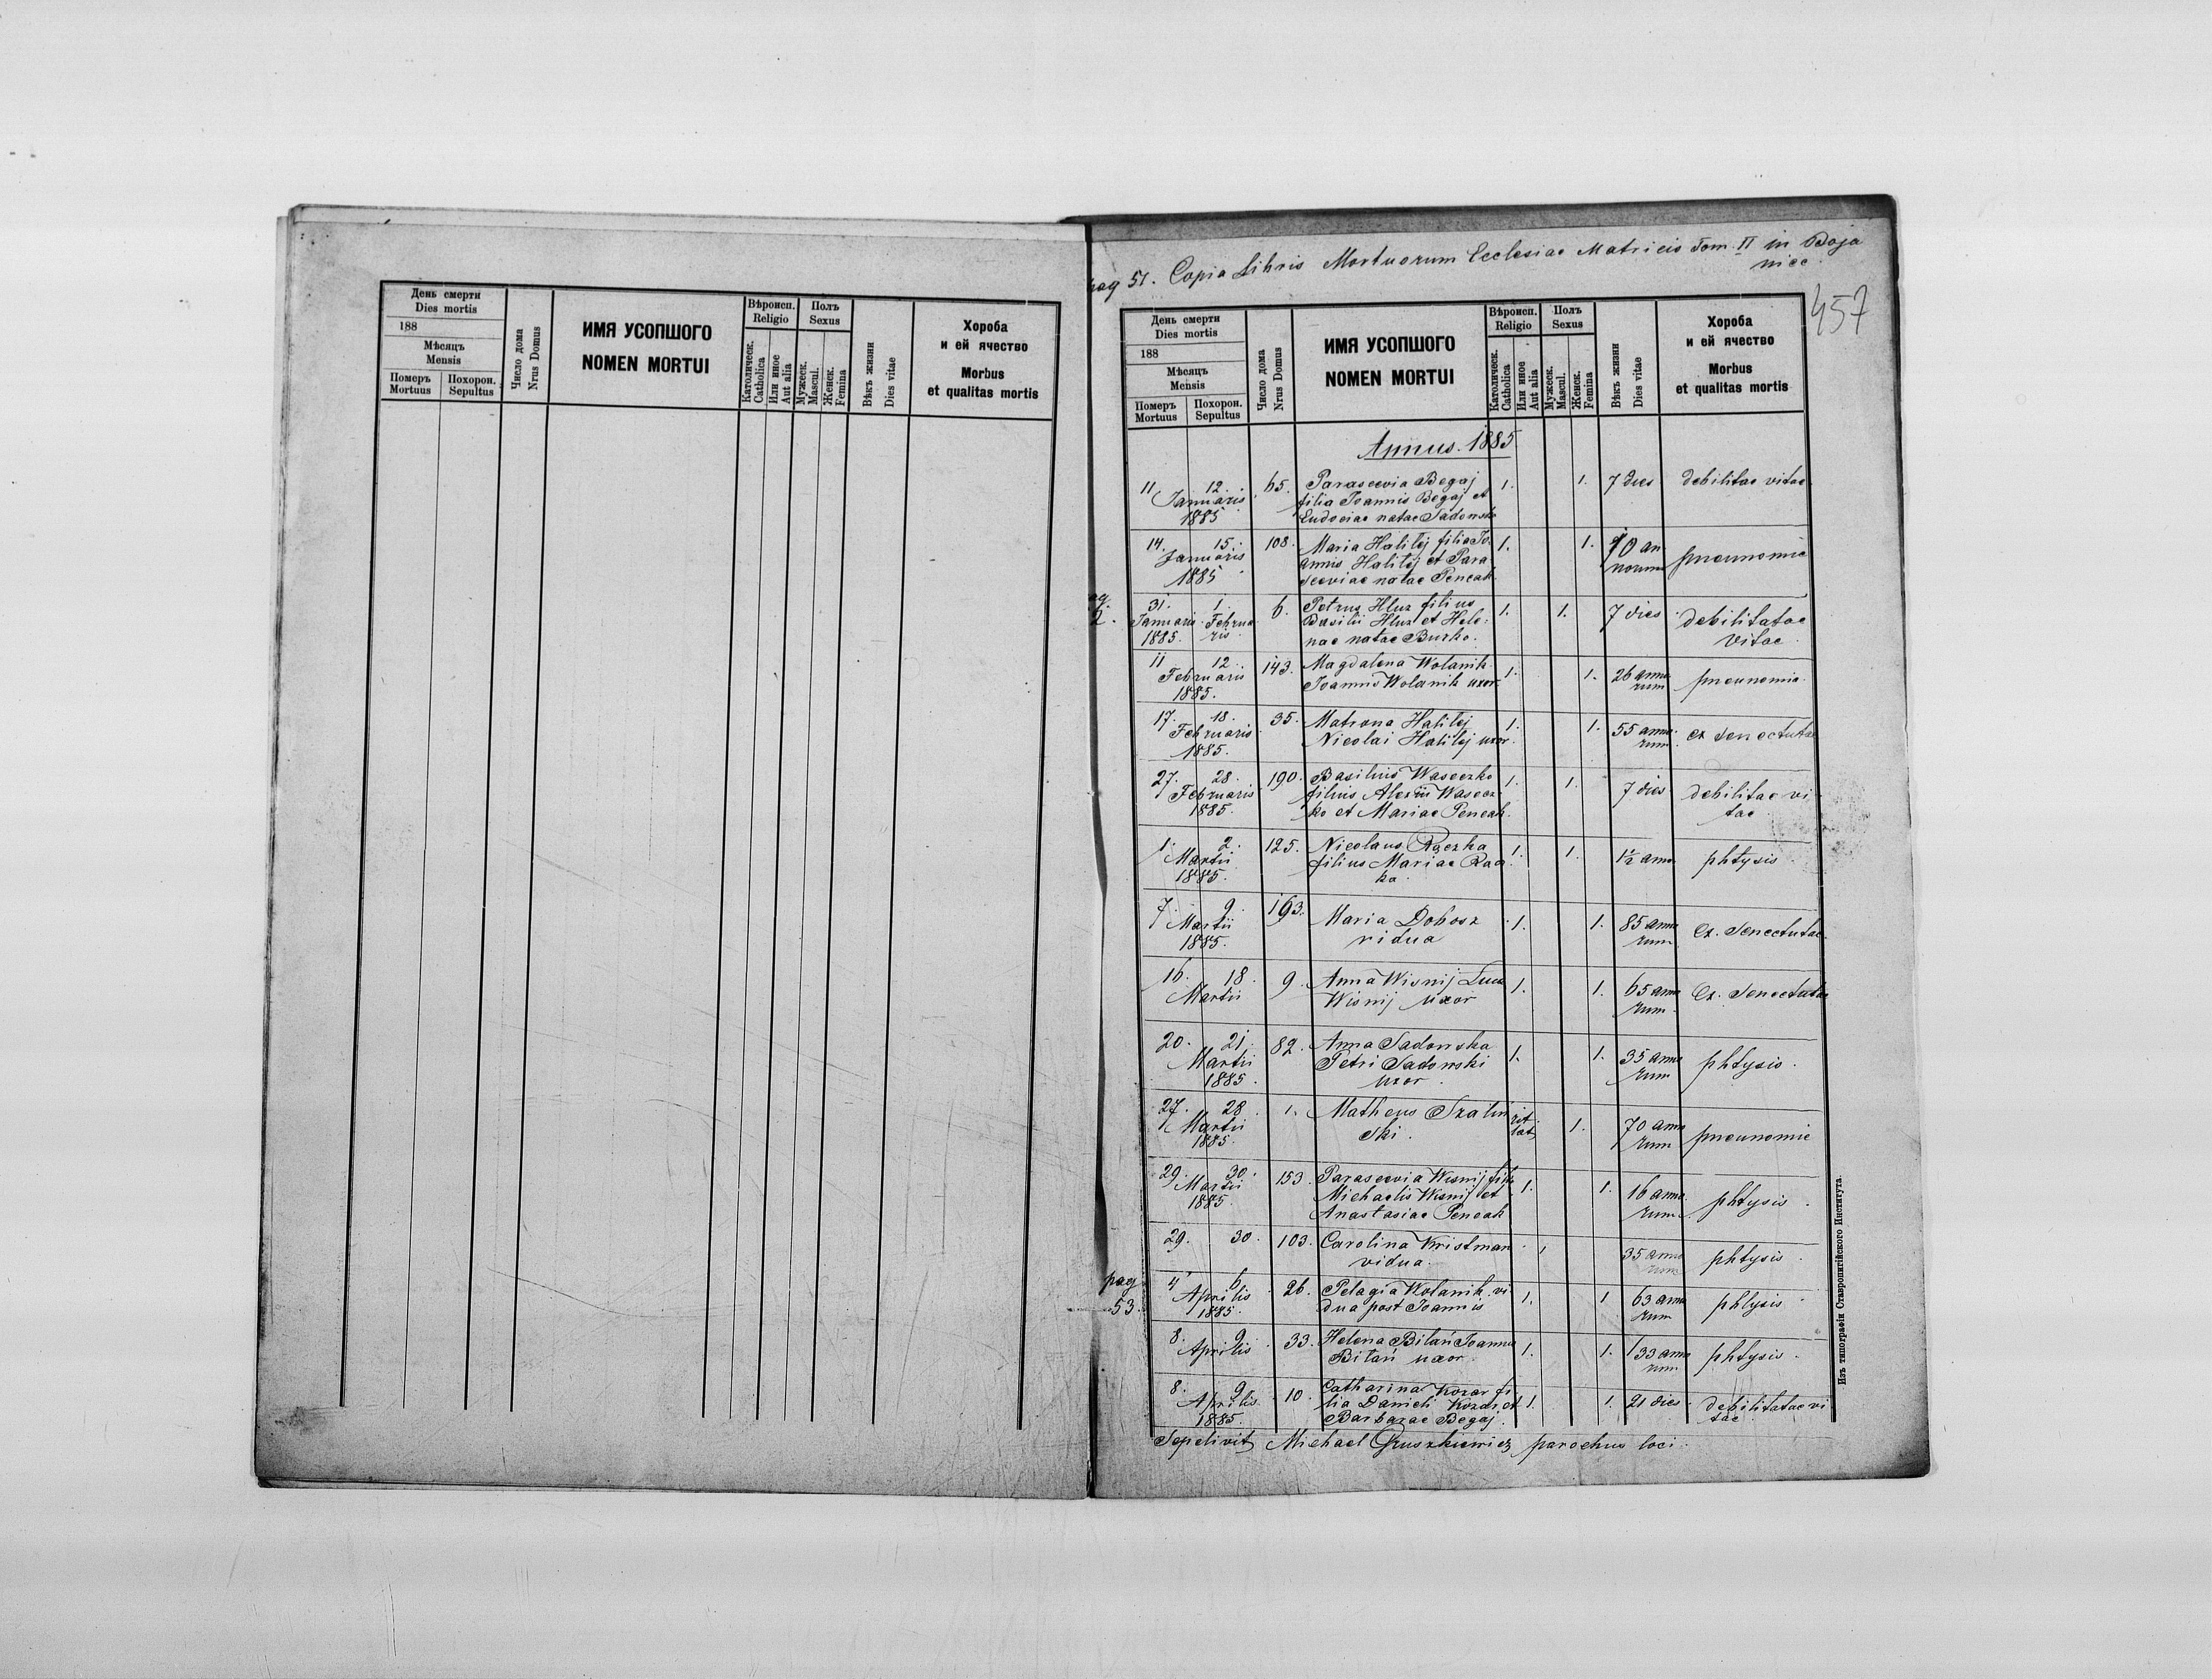 День смерти
Dies mortis
188
Мѣсяцъ
Mensis
Померъ
Mortuus
Похорон.
Sepultus
Число дома
Nrus Domus
ИМЯ УСОПШОГО
NOMEN MORTUI
Вѣроисп.
Religio
Католическ.
Catholica
Или иное
Aut alia
Полъ
Sexus
Мужеск.
Mascul.
Женск.
Femina
Вѣкъ жизни
Dies vitae
Хороба
и ей ячество
Morbus
et qualitas mortis
pag 51. Copia Libris Mortuorum Ecclesiae Matricis Tom. II in Boja
nice
457
День смерти
Dies mortis
188
Мѣсяцъ
Mensis
Померъ
Mortuus
Похорон.
Sepultus
Число дома
Nrus Domus
ИМЯ УСОПШОГО
NOMEN MORTUI
Вѣроисп.
Religio
Католическ.
Catholica
Или иное
Aut alia
Полъ
Sexus
Мужеск.
Mascul.
Женск.
Femina
Вѣкъ жизни
Dies vitae
Хороба
и ей ячество
Morbus
et qualitas mortis
Annus. 1885
11 12. 65. Parascevia Begaj 1. 1. 7 dies debilitae vitae
Januaris filia Joannis Begaj et
1885 Eudociae natae Sadowska
14. 15. 108. Maria Halilej filia Jo 1. 1. 70 an pneunomie
Januaris annis Halilej et Para norum
1885 sceviae natae Pencak
31. 1. 6. Petrus Hluz filius 1. 1. 7 dies debilitatae
Januaris Februa Basilii Hluz et Hele vitae
1885. ris nae natae Burko.
11 12. 143. Magdalena Wolanik 1. 1. 26 anno pneunomia
Februaris Joannis Wolanik uxor rum
1885.
17. 18. 35. Matrona Halilej 1. 1. 55 anno ex senectutae
Februaris Nicolai Halilej uxor. rum
1885.
27. 28. 190. Basilius Waseczko 1. 1. 7 dies debilitae vi
Februaris filius Alexii Wasecz tae
1885. ko et Mariae Pencak.
1. 2. 125. Nicolaus Raczka 1. 1. 1½ ann phtysis
Martii filius Mariae Racz
1885. ka.
7. 9. 163. Maria Dobosz 1. 1. 85 anno Ex. Senectutae.
Martii vidua rum
1885.
16. 18. 9. Anna Wisnij Luca 1. 1. 65 anno Ex. Senectutae
Martii Wisnij uxor rum
20. 21. 82. Anna Sadowska 1. 1. 35 anno phtysis.
Martii Petri Sadowski rum
1885. uxor.
27. 28 1. Matheus Szalin rit 1. 70 anno pneunomie
Martii ski. lat rum
1885.
29. 30. 153. Parascevia Wisnij filia 1. 1. 16 anno phtysis.
Martii Michaelis Wisnij et rum
1885. Anastasiae Pencak
29. 30. 103. Carolina Kristman 1 35 anno phtysis
vidua. rum
pag
53.
4 6 26. Pelagia Wolanik vi 1. 1 63 anno phtysis
Aprilis dua post Joannis rum
1885.
8. 9 33. Helena Bilań Joannis 1. 1. 33 anno phtysis.
Aprilis Bilań uxor. rum
8. 9 10. Catharina Kozar fi 1. 1. 21 dies debilitatae vi
Aprilis. lia Danieli Kozar et tae
1885. Barbarae Begaj.
Sepelivit Michael Gruszkiewicz parochus loci.
Изъ типографіи Ставропигійского Института.